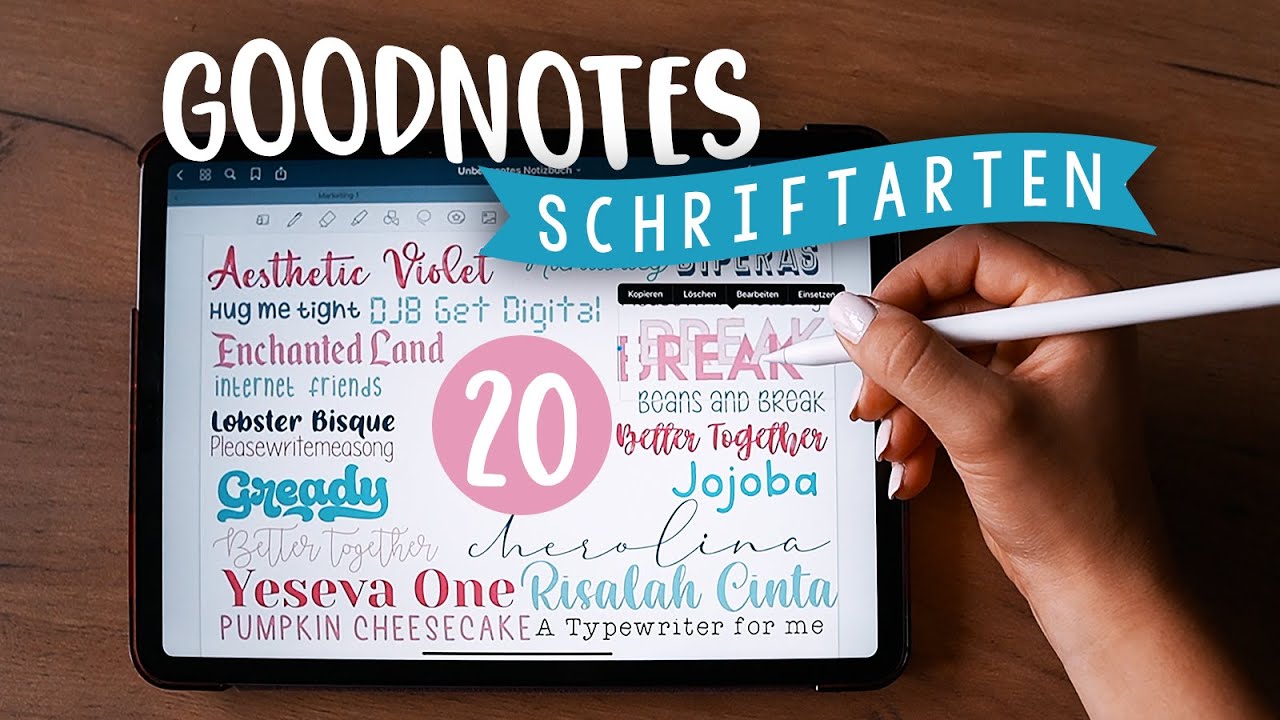 GOODNOTES
SCHRIFTARTEN
Notizbuch
Marketing 1
Aesthetic Violet
BIPERAS
Kopieren Löschen Bearbeiten Einsetzen
Hug me tight DJB Get Digital
BREAK
Enchanted Land
BREAK
internet friends
Beans and Break
20
Lobster Bisque
Better Together
Pleasewritemeasong
Gready
Jojoba
Better Together
cherolina
Yeseva One Risalah Cinta
PUMPKIN CHEESECAKE A Typewriter for me